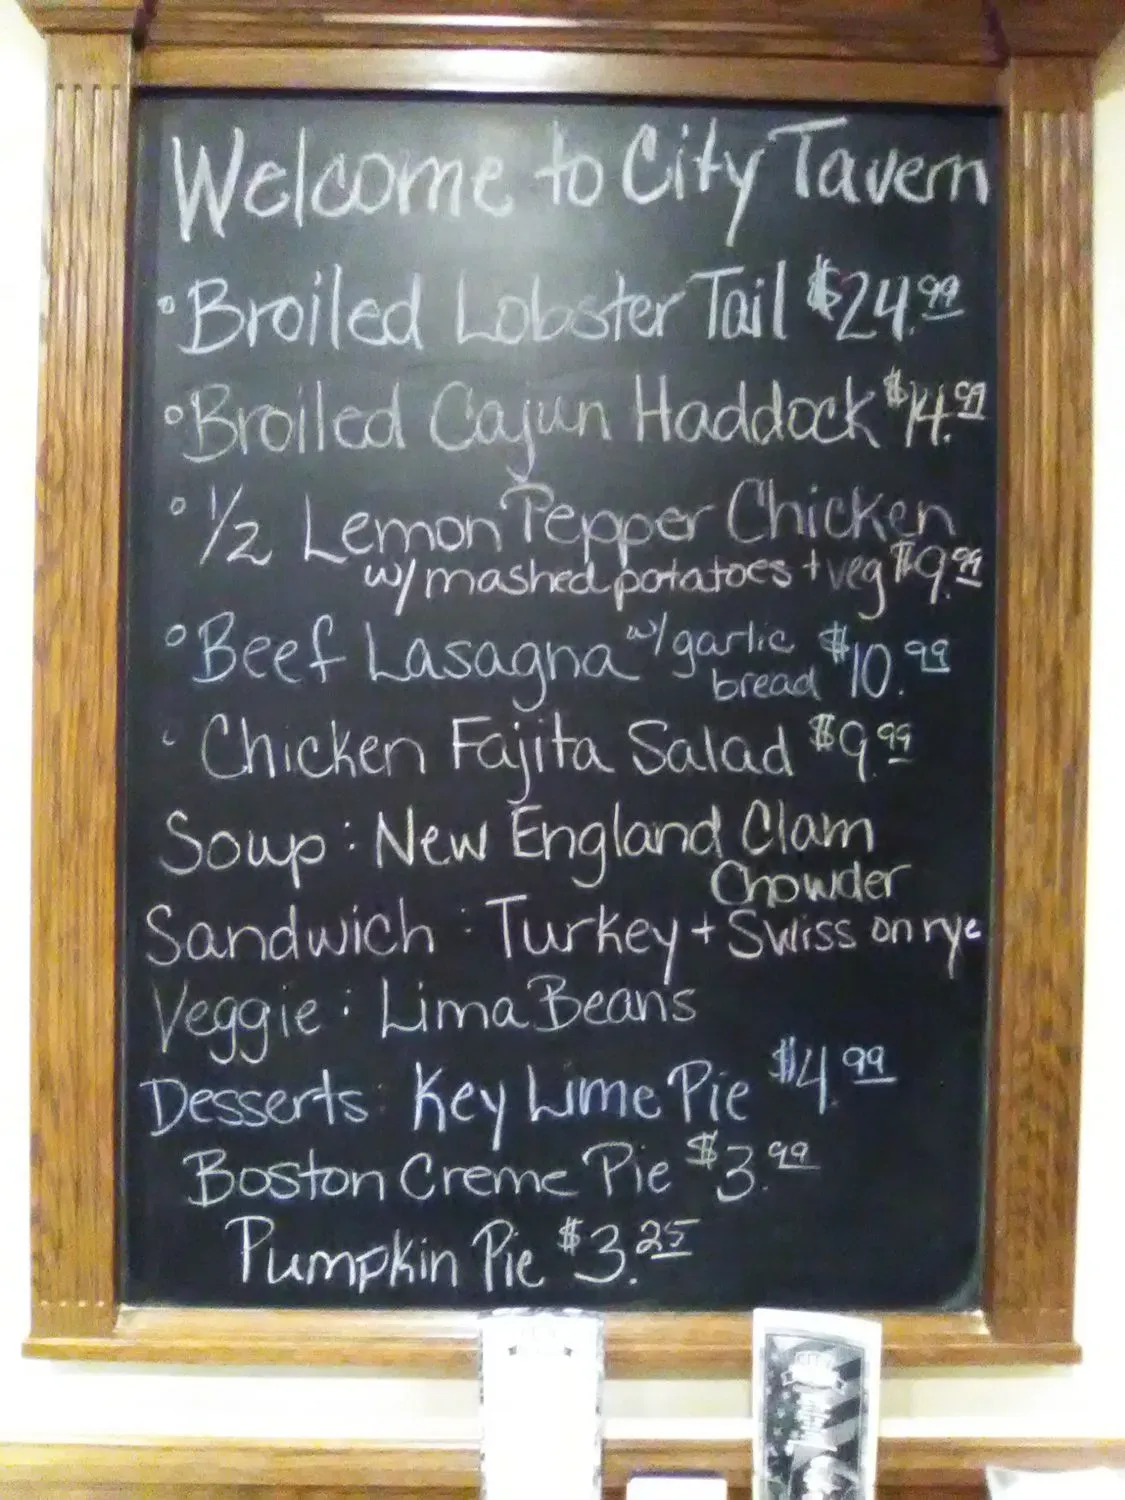 Welcome to City Tavern
Broiled Lobster Tail $24.99
Broiled Cajun Haddock $14.99
1/2 Lemon Pepper Chicken
w/ mashed potatoes + veg $9.99
Beef Lasagna w/ garlic bread $10.99
Chicken Fajita Salad $9.99
Soup: New England Clam
Chowder
Sandwich: Turkey + Swiss on rye
Veggie: Lima Beans
Desserts: Key Lime Pie $4.99
Boston Creme Pie $3.99
Pumpkin Pie $3.25
CITY